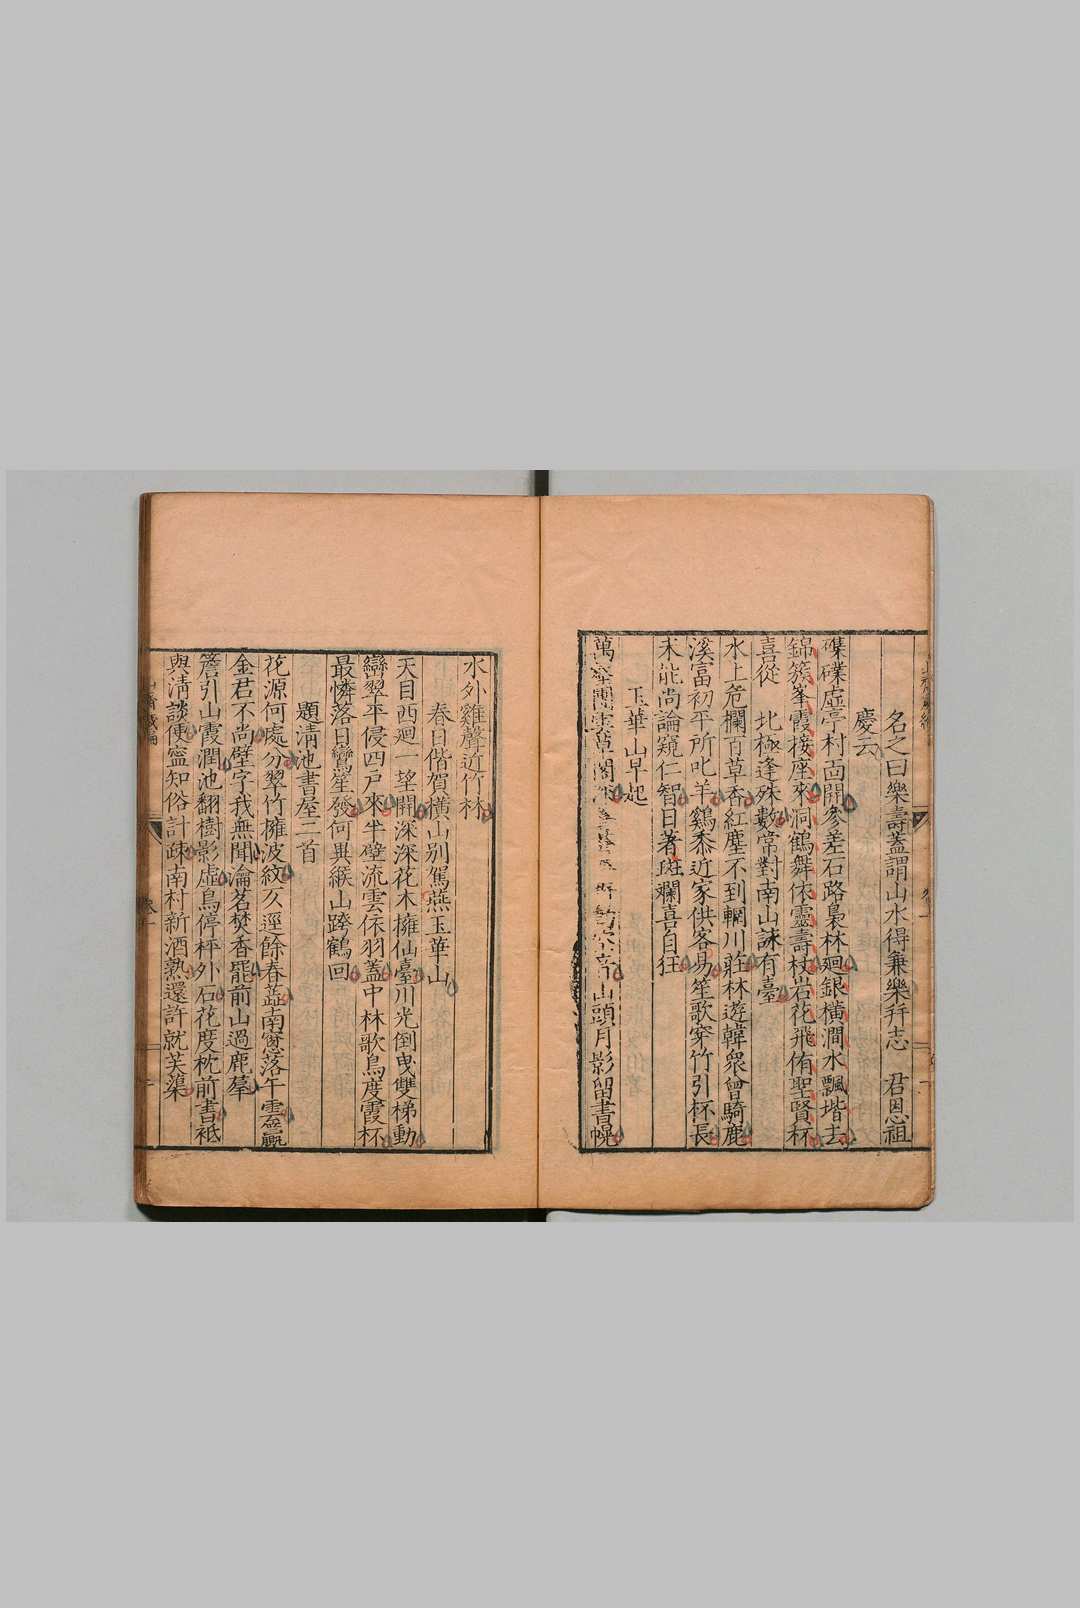 名之曰樂壽蓋謂山水得兼樂拜志　君恩祖
慶云
磼磼虛亭村面開參差石路裊林廻銀橫澗水飄堦去
錦簇峯霞接座來洞鶴舞依靈壽杖岩花飛侑聖賢杯
喜從　北極逢殊數常對南山誺有臺
水上危欄百草香紅塵不到輞川莊林遊韓衆曾騎鹿
溪富初平所叱羊鷄黍近家供客易笙歌穿竹引杯長
未能尚論窺仁智日著斑斕喜自狂
玉華山早起
萬壑團 草閣 山頭月影留書幌
水外雞聲近竹林
春日偕賀橫山别駕燕玉華山
天目西廻一望開深深花木擁仙臺川光倒曳雙梯動
巒翠平侵四戶來半壁流雲依羽蓋中林歌鳥度霞杯
最憐落日鸞笙發何異緱山跨鶴回
題清池書屋二首
花源何處分翠竹擁波紋久逕餘春蘂南窻落午雲羸
金君不尚壁字我無聞瀹茗焚香罷前山過鹿羣
簷引山霞潤池翻樹影虛鳥停枰外石花度枕前書祗
與清談便寧知俗計疎南村新酒熟還許就芙蕖